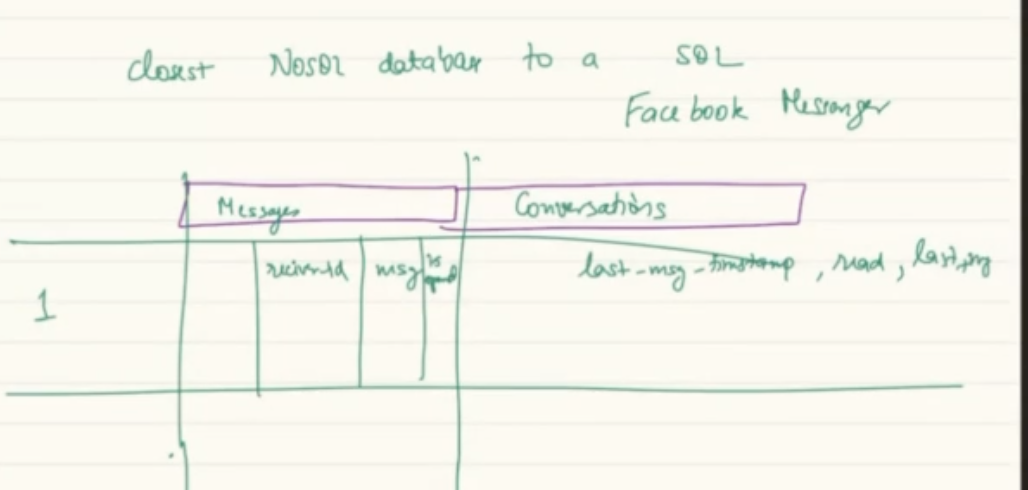 closest NoSQL database to a SQL
Facebook Messanger
Messages Conversations
reciver-Id msg is last-msg-timstamp , read , last-msg
1